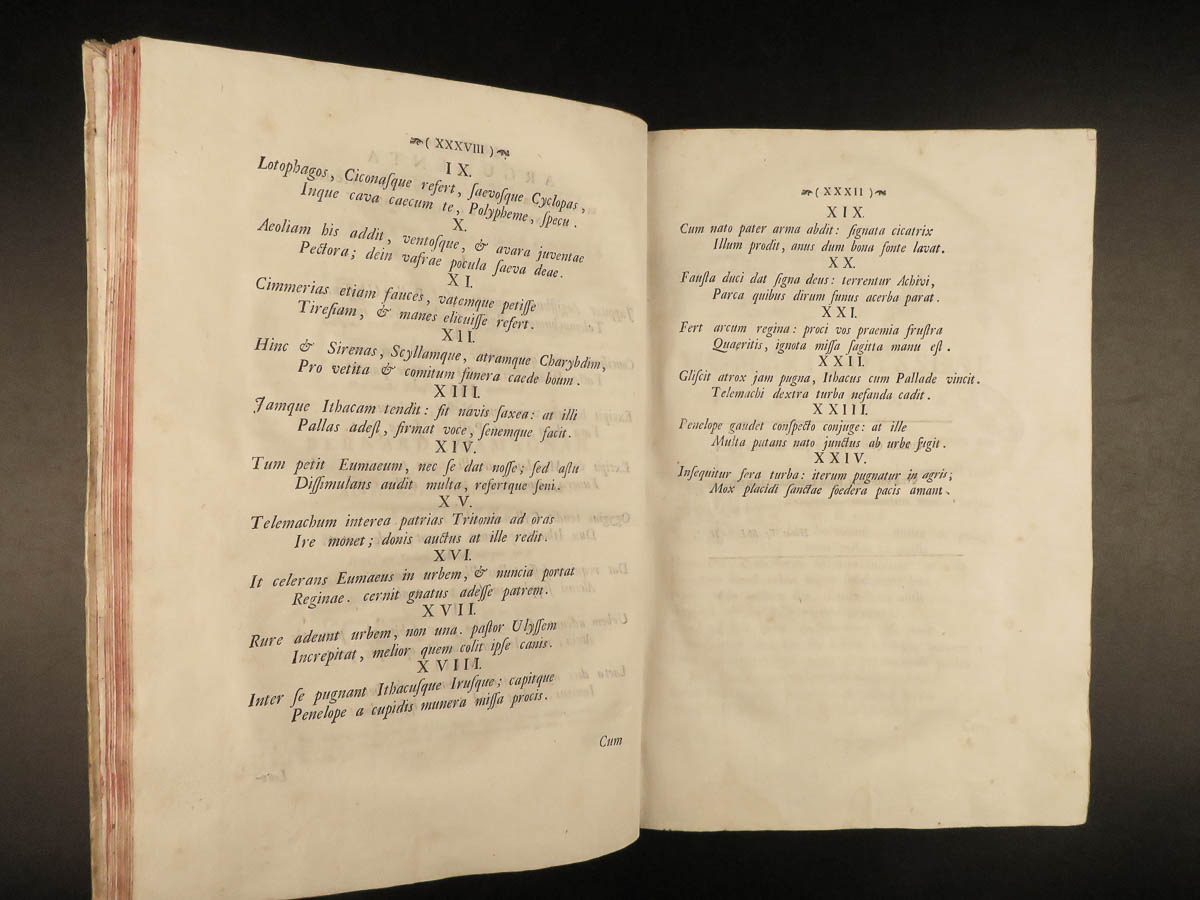 ( XXXVIII )
IX.
Lotophagos, Ciconaſque refert, ſaevoſque Cyclopas,
Inque cava caecum te, Polypheme, ſpecu.
X.
Aeoliam his addit, ventoſque, & avara juventae
Pectora; dein vafrae pocula ſaeva deae.
XI.
Cimmerias etiam fauces, vatemque petiſſe
Tireſiam, & manes elicuiſſe refert.
XII.
Hinc & Sirenas, Scyllamque, atramque Charybdim,
Pro vetita & comitum funera caede boum.
XIII.
Jamque Ithacam tendit: fit navis ſaxea: at illi
Pallas adeſt, firmat voce, ſenemque facit.
XIV.
Tum petit Eumaeum, nec ſe dat noſſe; ſed aſtu
Diſſimulans audit multa, refertque ſeni.
XV.
Telemachum interea patrias Tritonia ad oras
Ire monet; donis auctus at ille redit.
XVI.
It celerans Eumaeus in urbem, & nuncia portat
Reginae. cernit gnatus adeſſe patrem.
XVII.
Rure adeunt urbem, non una. paſtor Ulyſſem
Increpitat, melior quem colit ipſe canis.
XVIII.
Inter ſe pugnant Ithacuſque Iruſque; capitque
Penelope a cupidis munera miſſa procis.
Cum
( XXXII )
XIX.
Cum nato pater arma abdit: ſignata cicatrix
Illum prodit, anus dum bona fonte lavat.
XX.
Fauſta duci dat ſigna deus: terrentur Achivi,
Parca quibus dirum funus acerba parat.
XXI.
Fert arcum regina: proci vos praemia fruſtra
Quaeritis, ignota miſſa ſagitta manu eſt.
XXII.
Gliſcit atrox jam pugna, Ithacus cum Pallade vincit.
Telemachi dextra turba nefanda cadit.
XXIII.
Penelope gaudet conſpecto conjuge: at ille
Multa putans nato junctus ab urbe fugit.
XXIV.
Inſequitur fera turba: iterum pugnatur in agris;
Mox placidi ſanctae foedera pacis amant.